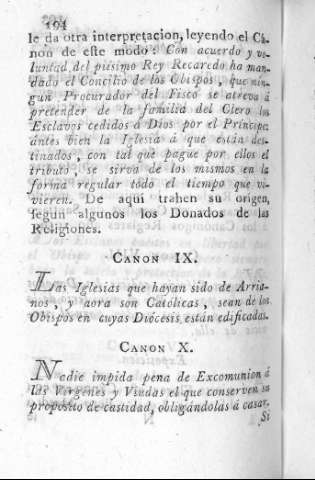 194
le da otra interpretacion, leyendo el Cá-
non de este modo: Con acuerdo y vo-
luntad del piísimo Rey Recaredo ha man-
dado el Concilio de los Obispos, que nin-
gun Procurador del Fisco se atreva á
pretender de la familia del Clero los
Esclavos cedidos á Dios por el Príncipe
ántes bien la Iglesia á que están des-
tinados, con tal que pague por ellos el
tributo, se sirva de los mismos en la
forma regular todo el tiempo que vi-
vieren. De aquí trahen su orígen,
segun algunos los Donados de las
Religiones.
CANON IX.
Las Iglesias que hayan sido de Arria-
nos, y aora son Católicas, sean de los
Obispos en cuyas Diócesis están edificadas.
CANON X.
Nadie impida pena de Excomunion á
las Vírgenes y Viudas el que conserven su
propósito de castidad, obligándolas á casar.
Si